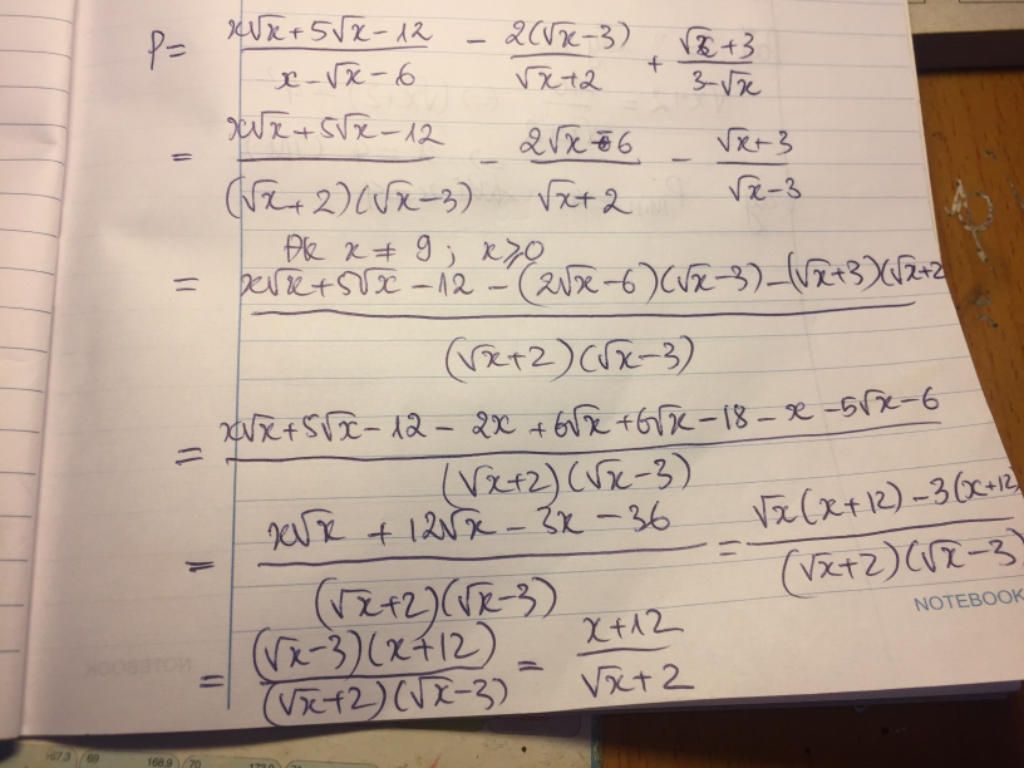 P = (x√x + 5√x - 12)/(x - √x - 6) - 2(√x - 3)/(√x + 2) + (√x + 3)/(3 - √x)
= (x√x + 5√x - 12)/((√x + 2)(√x - 3)) - (2√x - 6)/(√x + 2) - (√x + 3)/(√x - 3)
Đk x ≠ 9 ; x ⩾ 0
= (x√x + 5√x - 12 - (2√x - 6)(√x - 3) - (√x + 3)(√x + 2)/((√x + 2)(√x - 3))
= (x√x + 5√x - 12 - 2x + 6√x + 6√x - 18 - x - 5√x - 6)/((√x + 2)(√x - 3))
= (x√x + 12√x - 3x - 36)/((√x + 2)(√x - 3)) = (√x(x + 12) - 3(x + 12)/((√x + 2)(√x - 3)
NOTEBOOK
= ((√x - 3)(x + 12))/((√x + 2)(√x - 3)) = (x + 12)/(√x + 2)
167.3 69 168.9 70